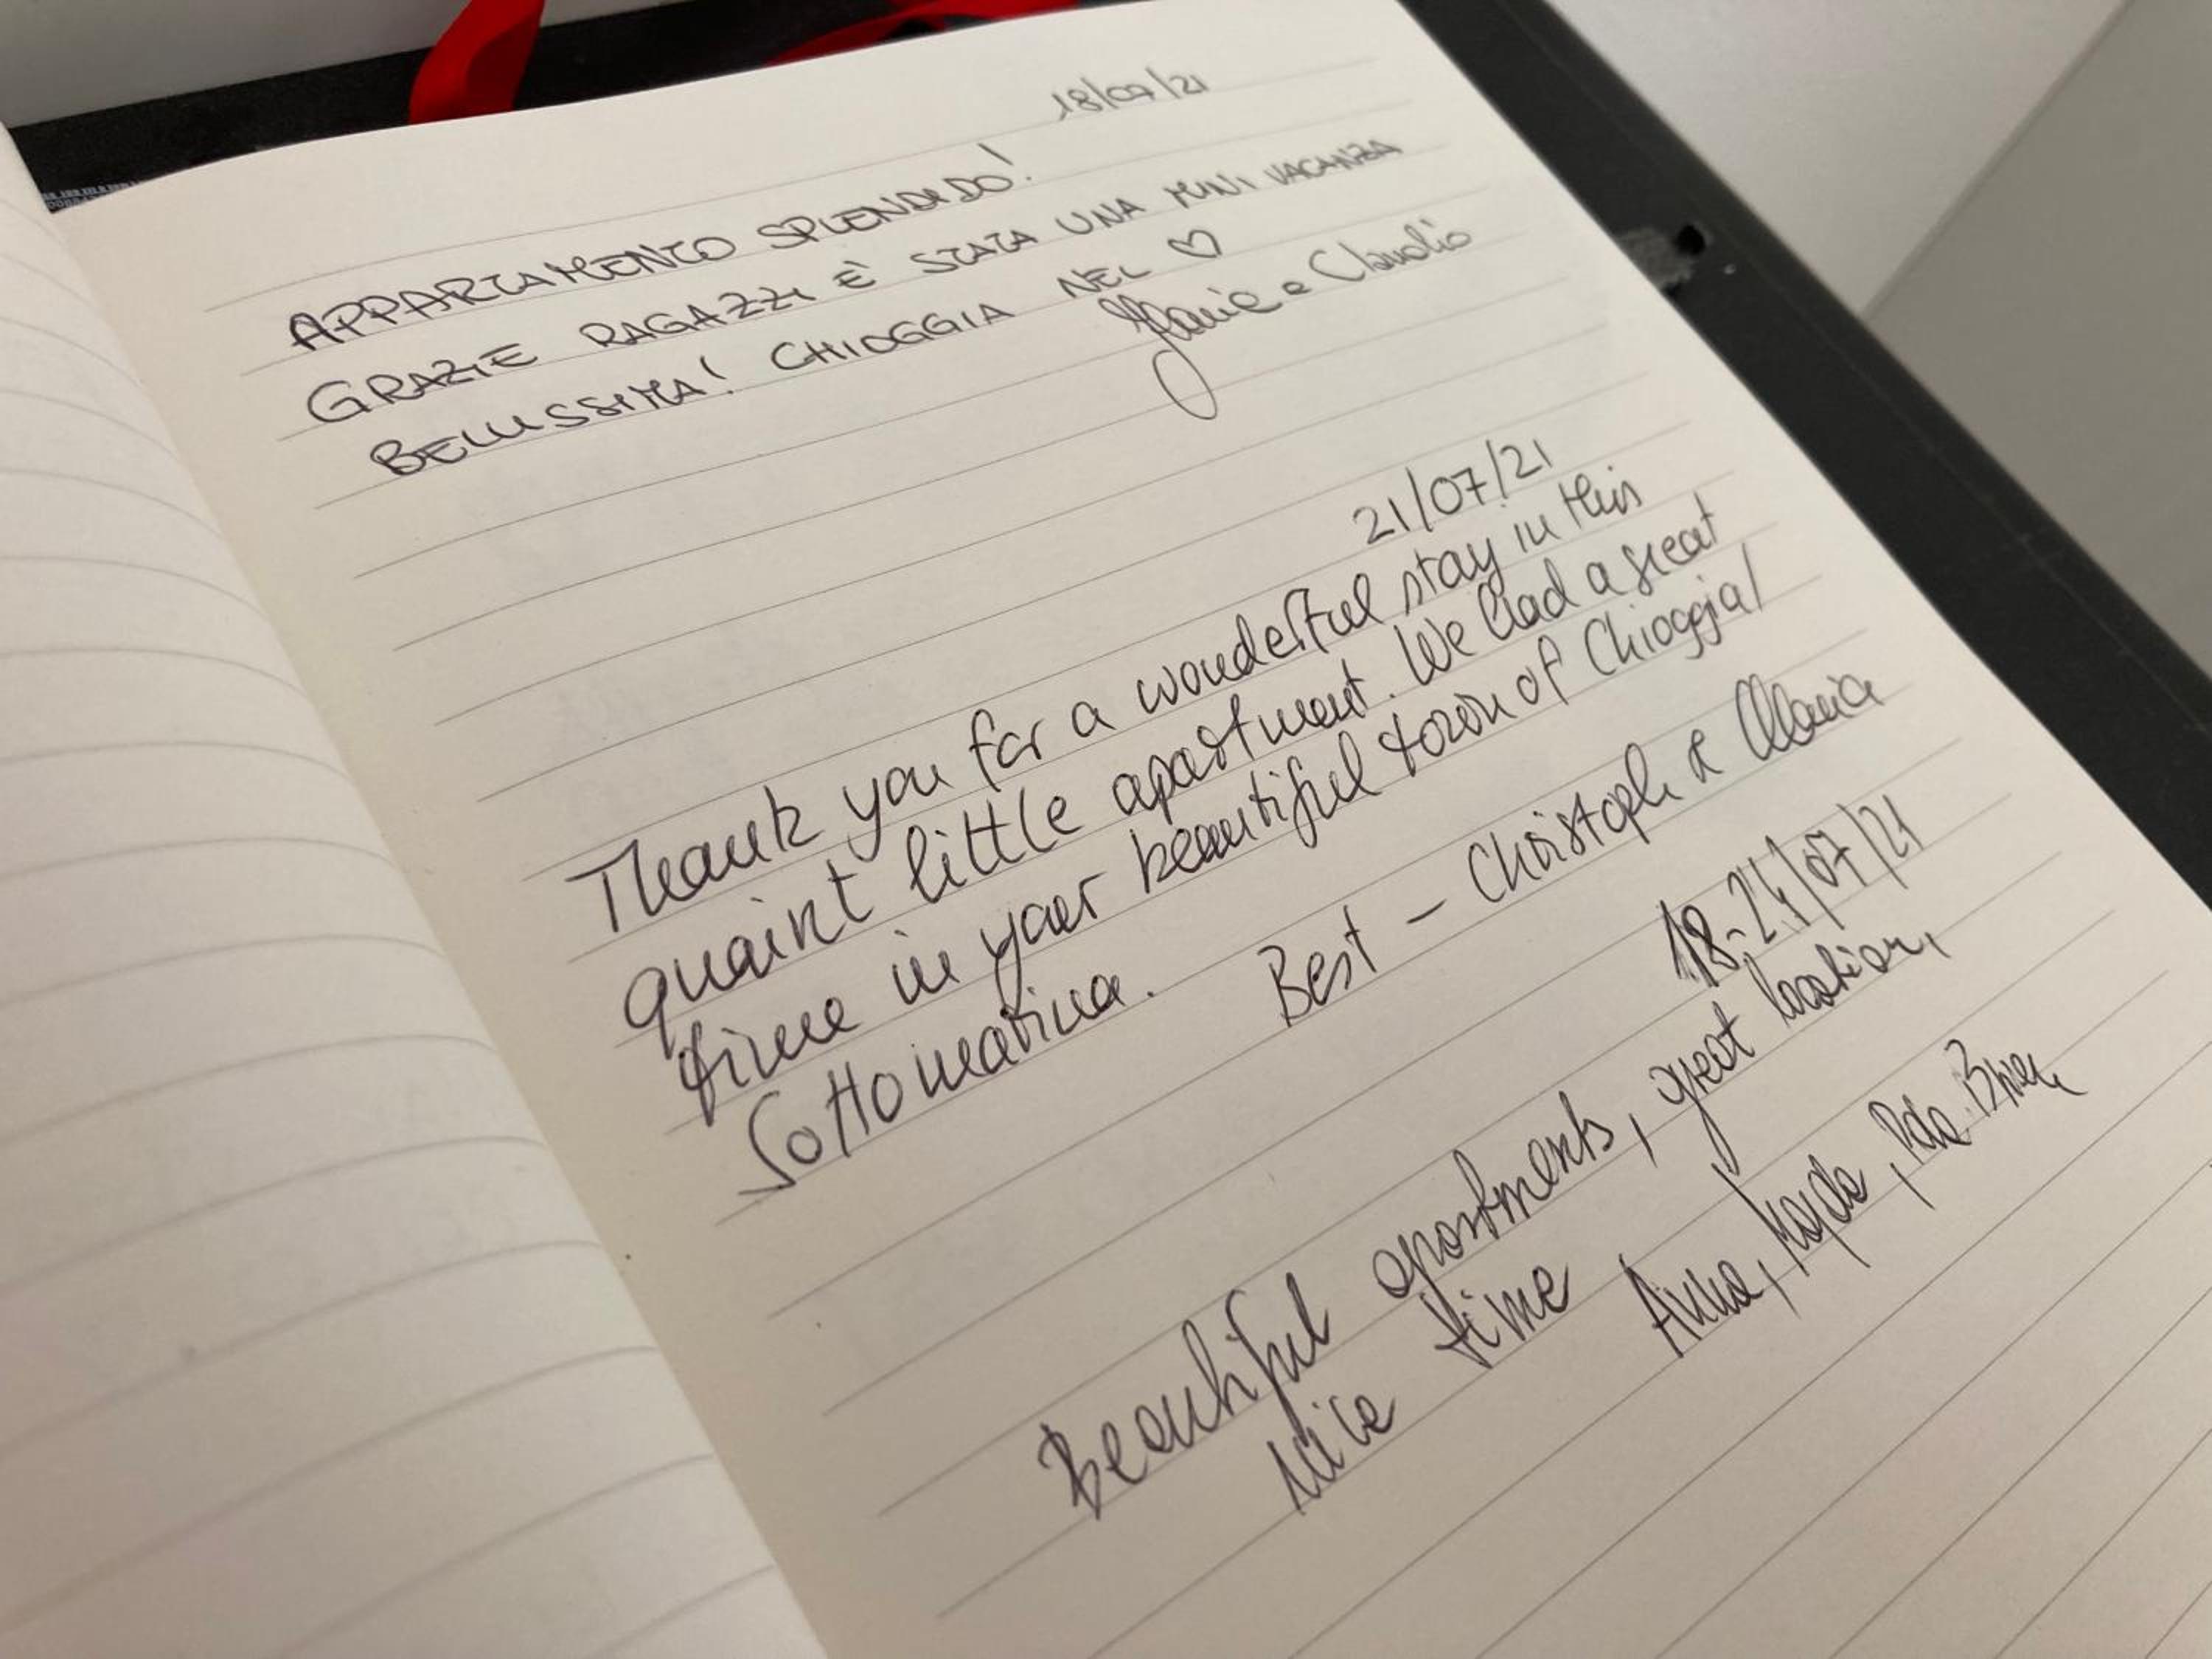 18/07/21
APPARTAMENTO SPLENDIDO!
GRAZIE RAGAZZI È STATA UNA MINI VACANZA
BELLISSIMA! CHIOGGIA NEL ♡
e Claudio
21/07/21
Thank you for a wonderful stay in this
quaint little apartment. We had a great
time in your beautiful town of Chioggia/
Sottomarina. Best – Christoph & Maria
18-24/07/21
Beautiful apartments, great location,
nice time Anna, Majda,